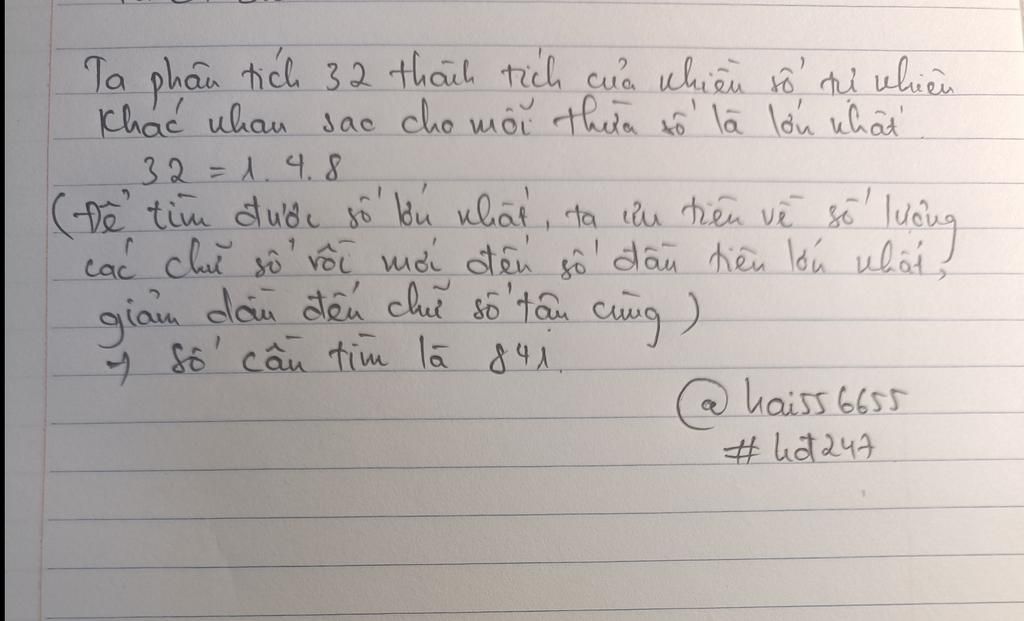 Ta phân tích 32 thành tích của nhiều số tự nhiên
khác nhau sao cho mỗi thừa số là lớn nhất.
32 = 1.4.8
(Để tìm được số lớn nhất, ta ưu tiên về số lượng
các chữ số rồi mới đến số đầu tiên lớn nhất,
giảm dần đến chữ số tận cùng)
→ Số cần tìm là 841.
@hai556655
#hđ247